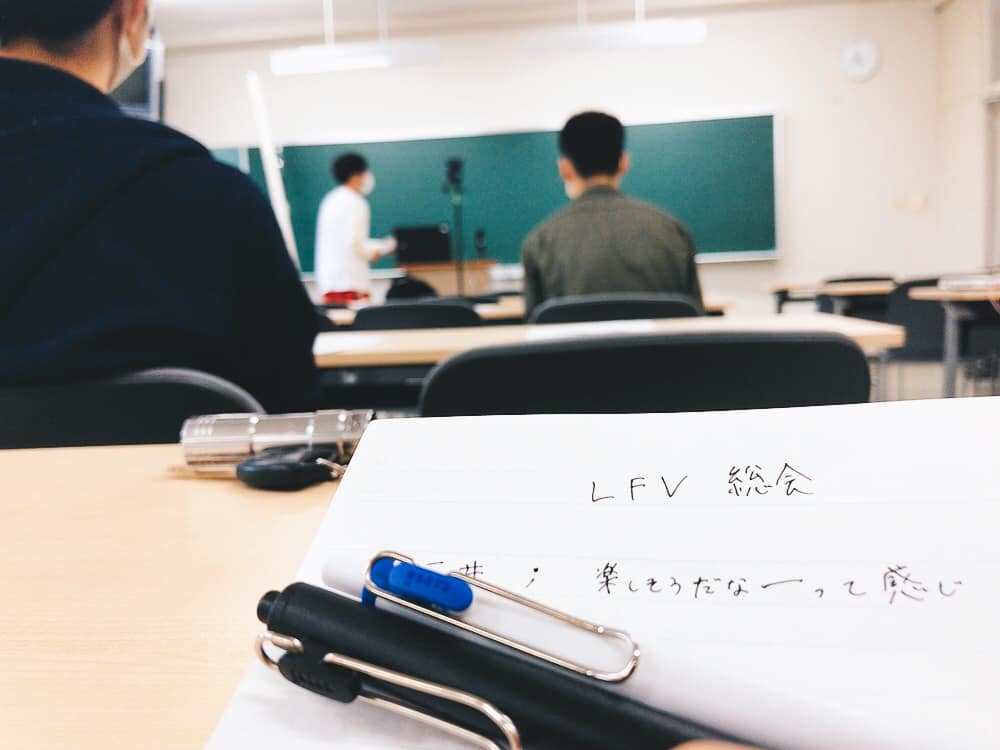 LFV 総会
: 楽しそうだなーって感じ